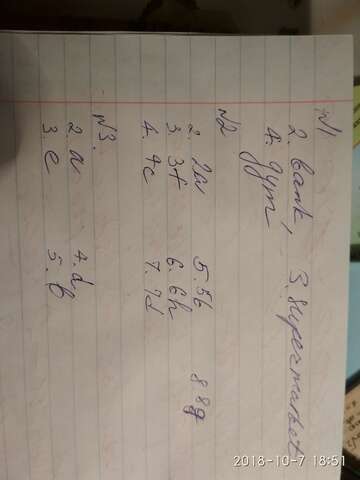 №1
2. bank, 3. supermarket
4. gym
№2
2. 2a 5 5b 8 8g
3. 3f 6. 6h
4. 4c 7. 7d
№3.
2. a 4. d
3. e 5. b
2018-10-7 18:51